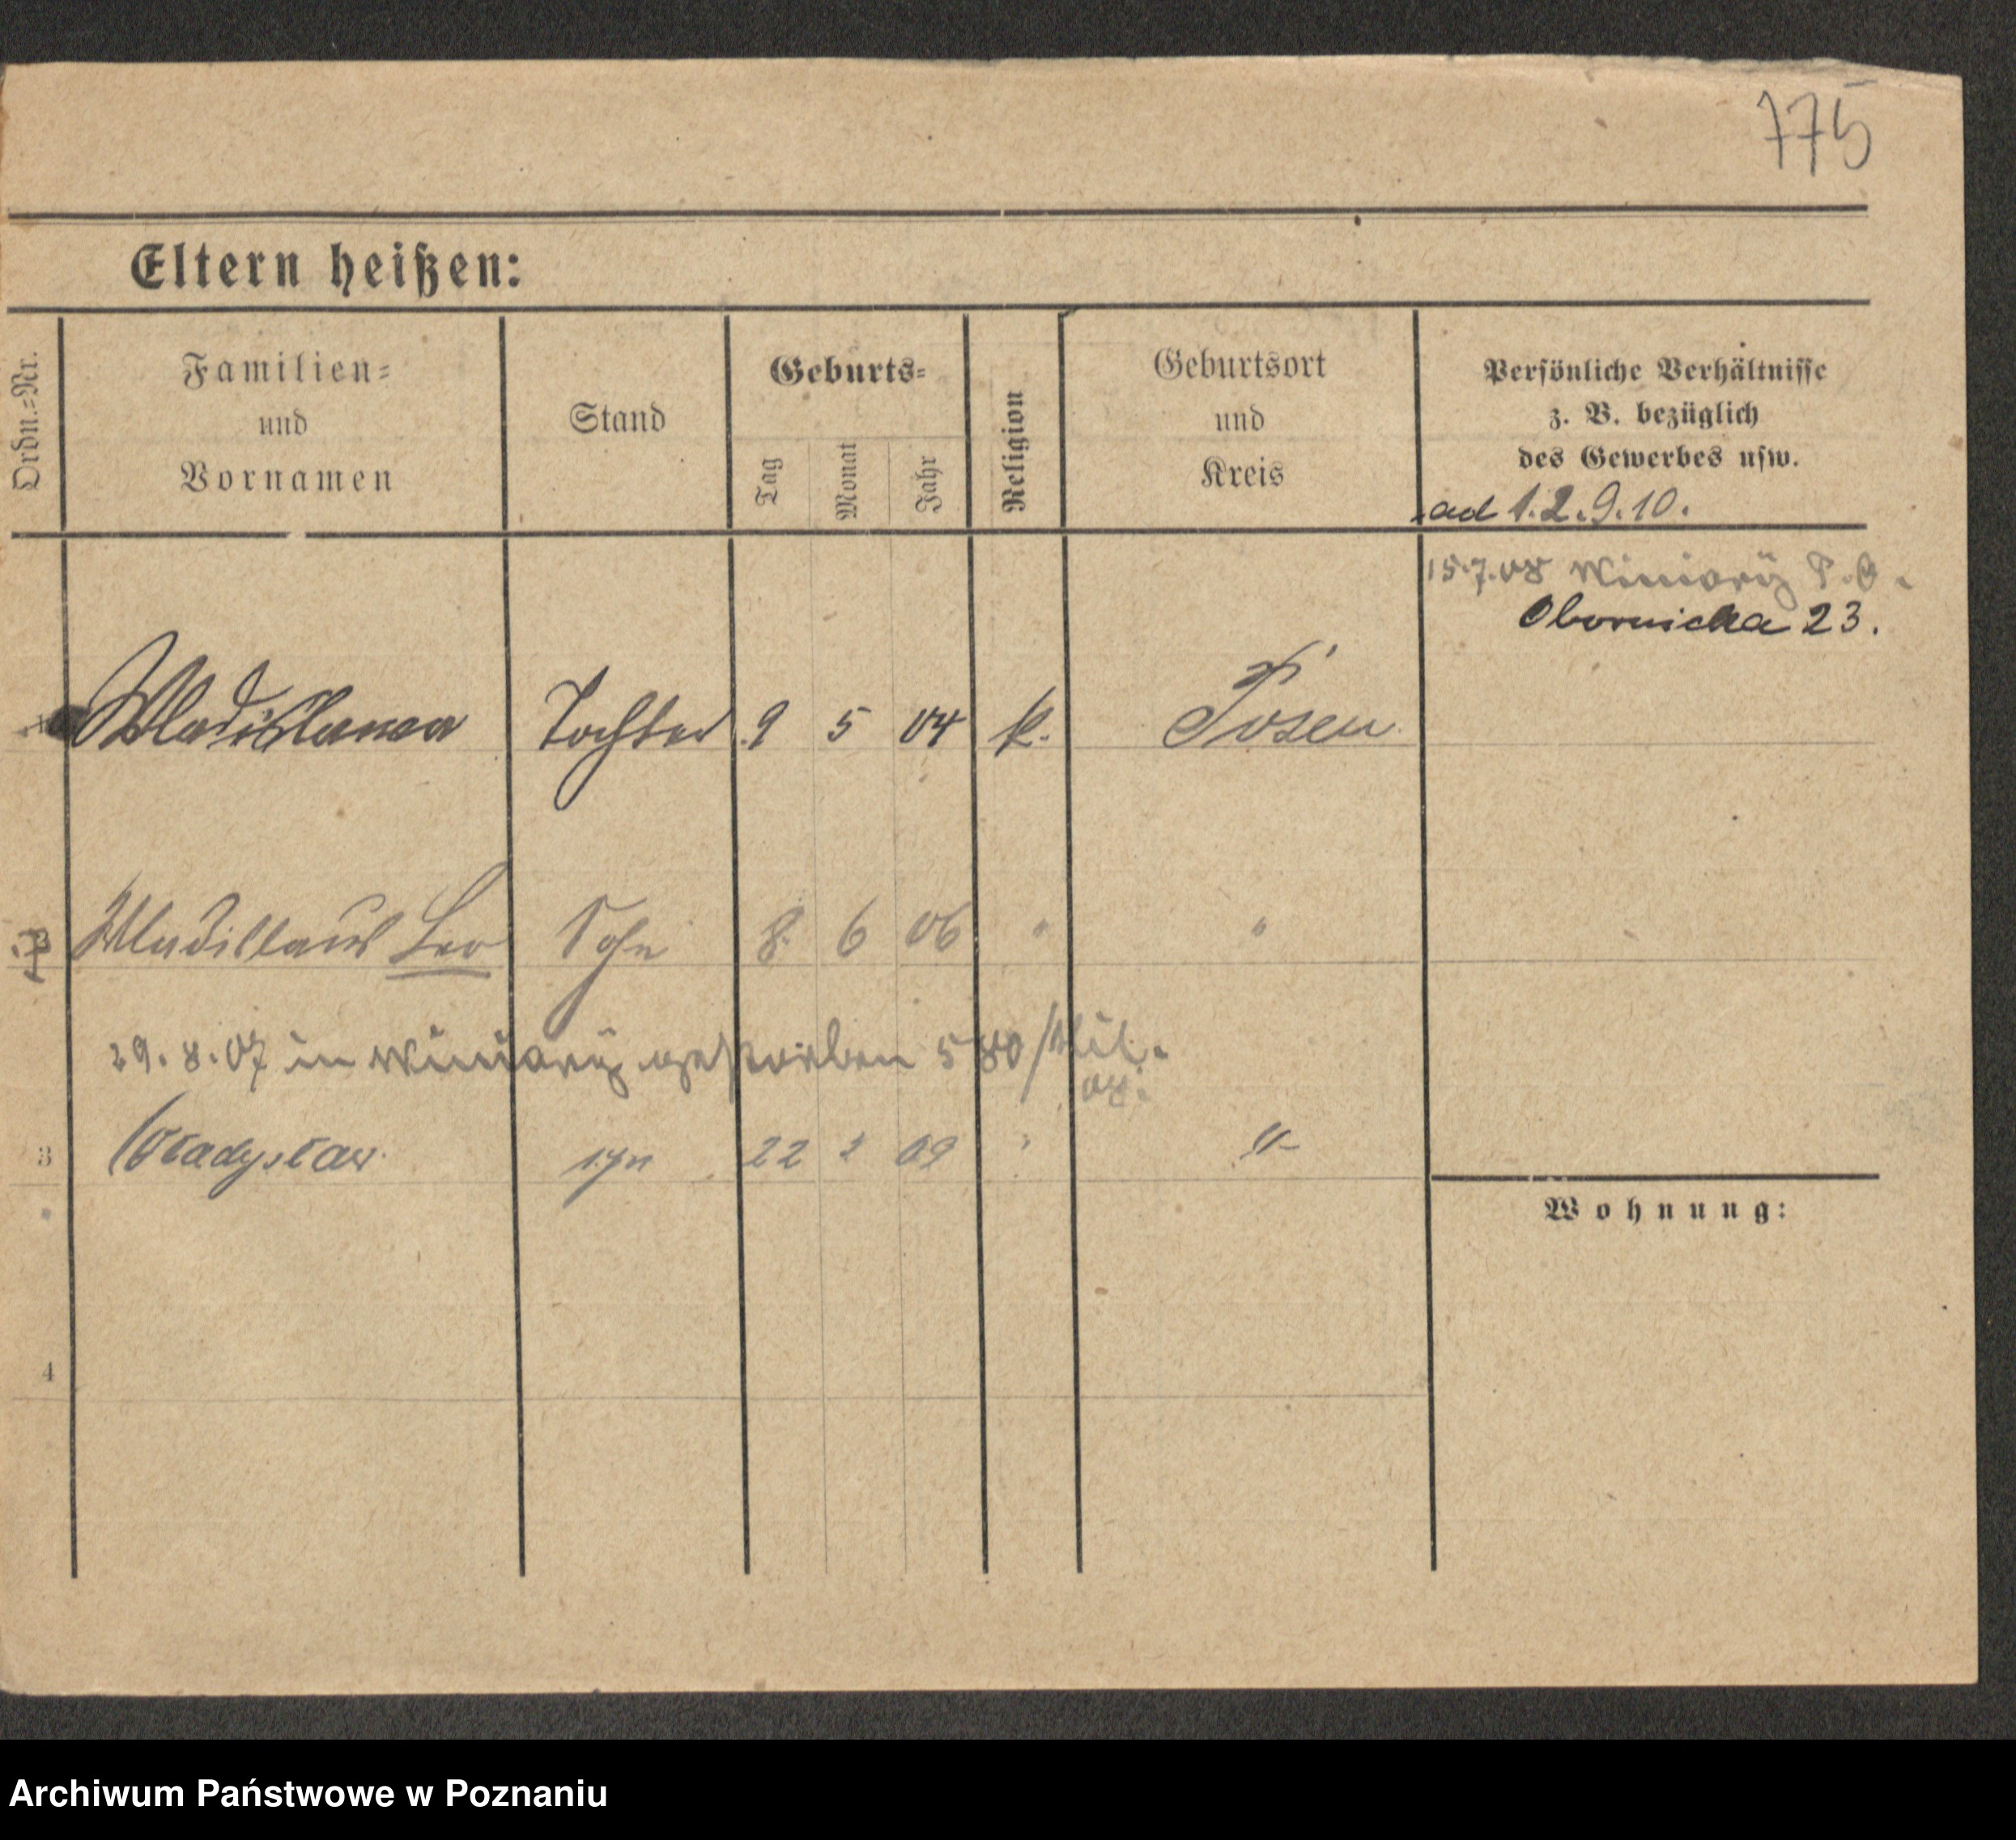 775
Eltern heißen:
Ordn.=Nr.
Familien=
und
Vornamen
Stand
Geburts=
Tag
Monat
Jahr
Religion
Geburtsort
und
Kreis
Persönliche Verhältnisse
z. B. bezüglich
des Gewerbes usw.
ad 1.2.9.10.
15.7.08 Winiary P. O.
Obornicka 23.
Wladislawa Tochter 9 5 04 k. Posen
Wladislaus Leo Sohn 8. 6 06 " "
29. 8. 07 in Winiary gestorben 580/
08.
3 Władysław syn 22 2 09 " "
4
Wohnung:
Archiwum Państwowe w Poznaniu